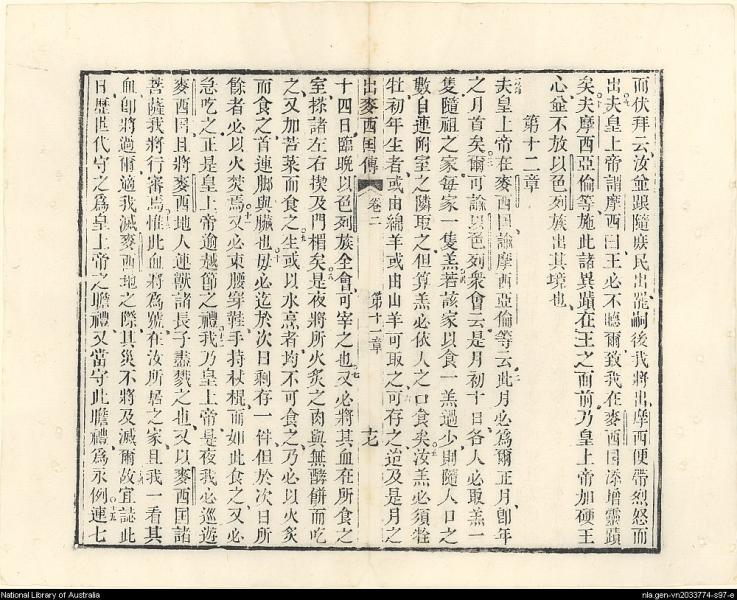 而伏拜云汝並跟隨庶民出罷嗣後我將出摩西便帶烈怒而
出夫皇上帝謂摩西曰王必不聽爾致我在麥西国添增靈蹟
矣夫摩西亞倫等施此諸異蹟在王之面前乃皇上帝加硬王
心並不放以色列族出其境也
第十二章
夫皇上帝在麥西国諭摩西亞倫等云此月必爲爾正月卽年
之月首矣爾可諭以色列衆會云是月初十日各人必取羔一
隻隨祖之家每家一隻羔若該家以食一羔過少則隨人口之
數自連附室之隣取之但算羔必依人之口食矣汝羔必須牷
牡初年生者或由綿羊或由山羊可取之可存之迨及是月之
十四日臨晚以色列族全會可宰之也又必將其血在所食之
室搽諸左右楔及門楣矣是夜將所火炙之肉與無酵餅而吃
之又加苦菜而食之生或以水烹者均不可食之乃必以火炙
而食之首連脚與臟也毋必迄於次日剩存一件但於次日所
餘者必以火焚焉又必束腰穿鞋手持杖棍而如此食之又必
急吃之正是皇上帝逾越節之禮我乃皇上帝是夜我必巡遊
麥西国且將麥西地人連獸諸長子盡戮之也又以麥西国諸
菩薩我將行審焉惟此血將爲號在汝所居之家且我一看其
血卽將過爾適我滅麥西地之際其災不將及滅爾故宜誌此
日歷世代守之爲皇上帝之瞻禮又當守此瞻禮爲永例連七
出麥西国傳
卷二
第十二章
National Library of Australia
nla.gen-vn2033774-s97-e